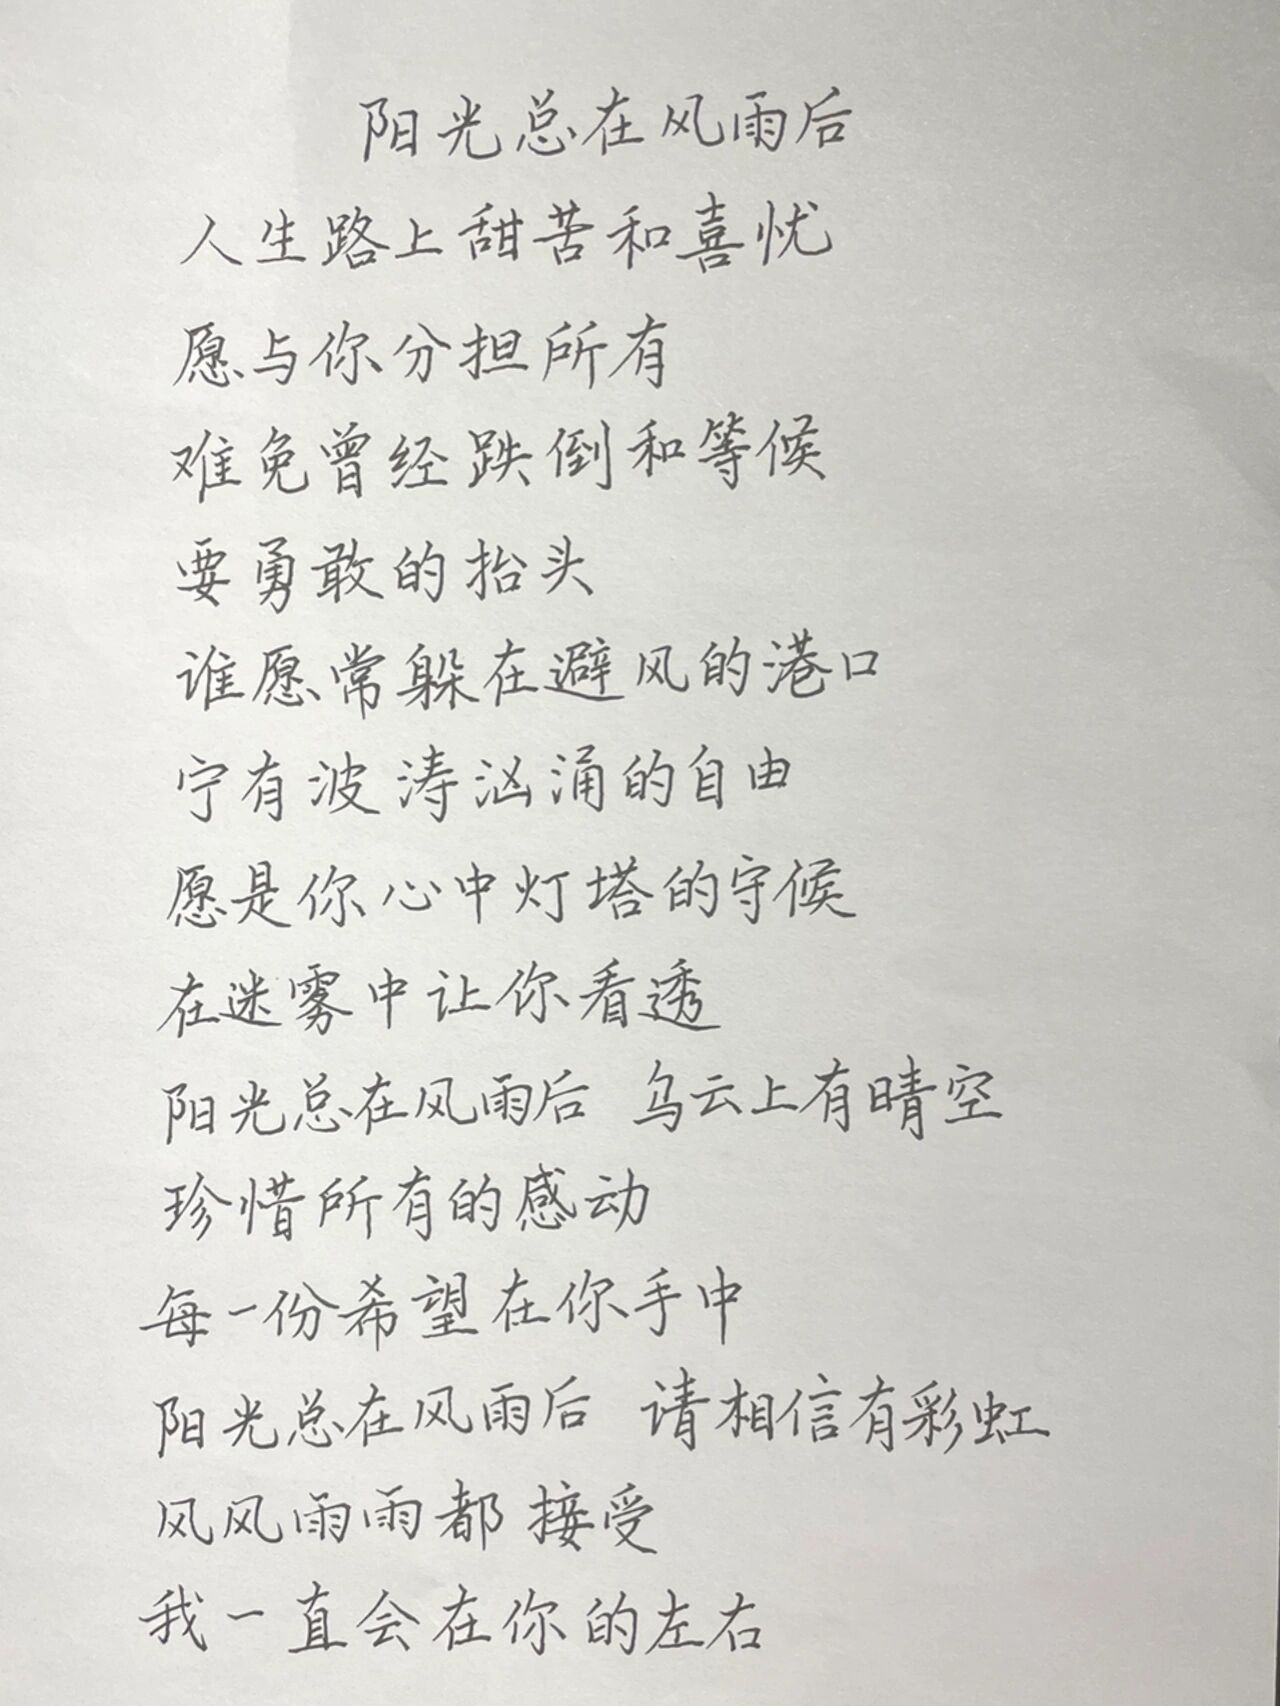 阳光总在风雨后
人生路上甜苦和喜忧
愿与你分担所有
难免曾经跌倒和等候
要勇敢的抬头
谁愿常躲在避风的港口
宁有波涛汹涌的自由
愿是你心中灯塔的守候
在迷雾中让你看透
阳光总在风雨后 乌云上有晴空
珍惜所有的感动
每一份希望在你手中
阳光总在风雨后 请相信有彩虹
风风雨雨都接受
我一直会在你的左右